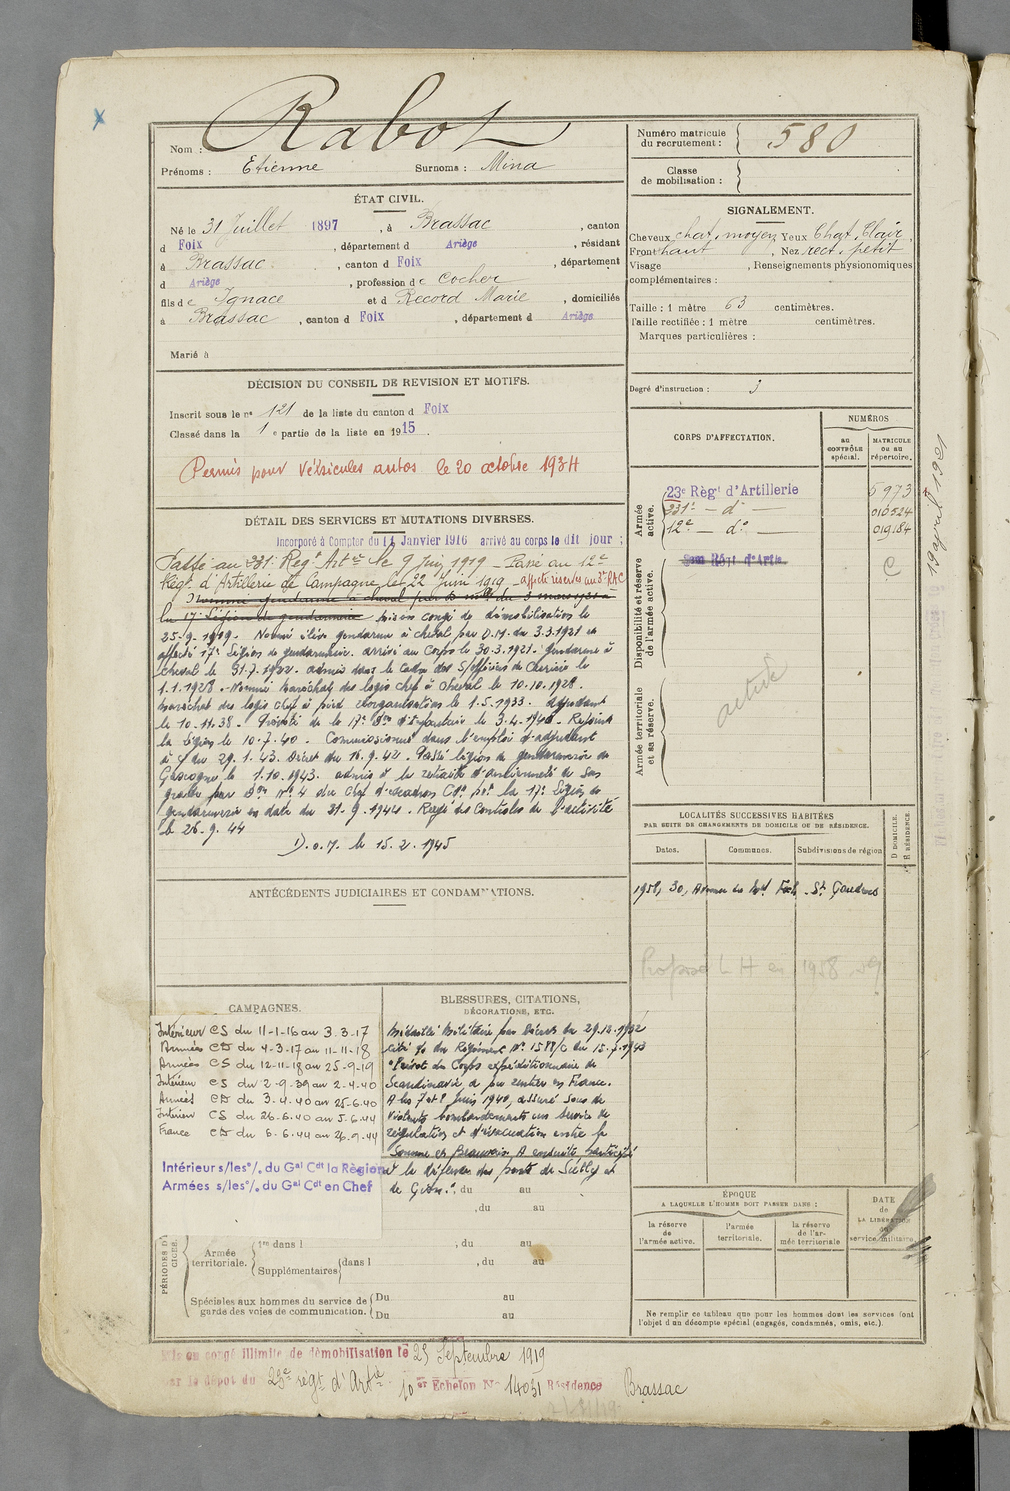 Nom : Rabot
Prénoms : Etienne Surnoms : Mina
Numéro matricule du recrutement : 580
Classe de mobilisation :
ÉTAT CIVIL.
Né le 31 Juillet 1897, à Brassac, canton
d Foix, département d Ariège, résidant
à Brassac, canton d Foix, département
d Ariège, profession de cocher
fils de Ignace et d Record Marie, domiciliés
à Brassac, canton d Foix, département d Ariège
Marié à
SIGNALEMENT.
Cheveux chat. moyen Yeux Chat. Clair
Front haut, Nez rect. petit
Visage, Renseignements physionomiques
complémentaires :
Taille : 1 mètre 63 centimètres.
Taille rectifiée : 1 mètre centimètres.
Marques particulières :
Degré d'instruction : 3
DÉCISION DU CONSEIL DE REVISION ET MOTIFS.
Inscrit sous le n° 121 de la liste du canton d Foix
Classé dans la 1e partie de la liste en 1915.
Permis pour Véhicules autos le 20 octobre 1934
DÉTAIL DES SERVICES ET MUTATIONS DIVERSES.
Incorporé à Compter du 11 Janvier 1916 arrivé au corps le dit jour ;
Passé au 231e Régt Artie le 9 Juin 1919 - Passé au 12e
Régt d'Artillerie de Campagne, le 22 Juin 1919 - affecté réserve au 3e RAC
Nommé gendarme à cheval par du 3 mars 1921 à
la 17e Légion de gendarmerie Mis en congé de démobilisation le
25-9-1919. Nommé élève gendarme à cheval par D.M. du 3.3.1921 et
affecté 17e Légion de gendarmerie. arrivé au Corps le 30.3.1921. Gendarme à
cheval le 31.7.1922. admis dans le Cadre des S/officiers de Carrière le
1.1.1928. Nommé Maréchal des logis chef à cheval le 10.10.1928.
Maréchal des logis chef à pied réorganisation le 1.5.1933. Adjudant
le 10.11.38. Prévôté de la 17e le 3.4.1940. Rejoint
la Légion le 10.7.40. Commissionné dans l'emploi d'adjudant
à du 29.1.43. Décret du 16.9.42. Passé légion de gendarmerie de
Gascogne le 1.10.1943. admis à la retraite d'ancienneté de son
grade par n° 4 du chef d'escadron Cdt la 17e Légion de
gendarmerie en date du 21.9.1944. Rayé des Contrôles de l'activité
le 26.9.44
D.O.M. le 15.2.1945
CORPS D'AFFECTATION.
NUMÉROS
AU CONTRÔLE spécial.
MATRICULE OU AU RÉPERTOIRE.
Armée active.
23e Règt d'Artillerie 5973
231e - do - 010524
12e - do - 019184
Disponibilité et réserve de l'armée active.
Régt d'Artie C
Armée territoriale et sa réserve.
active
19 avril 1921
LOCALITÉS SUCCESSIVES HABITÉES
PAR SUITE DE CHANGEMENTS DE DOMICILE OU DE RÉSIDENCE.
Dates. Communes. Subdivisions de région
D DOMICILE. R RÉSIDENCE.
1958, 30, Avenue du Mal Foch - St Gaudens
Proposé LH en 1958-59
ANTÉCÉDENTS JUDICIAIRES ET CONDAMNATIONS.
CAMPAGNES.
Intérieur CS du 11-1-16 au 3-3-17
Armées CD du 4-3-17 au 11-11-18
Armées CS du 12-11-18 au 25-9-19
Intérieur CS du 2-9-39 au 2-4-40
Armées CD du 3-4-40 au 25-6-40
Intérieur CS du 26-6-40 au 5-6-44
France CD du 6-6-44 au 26-9-44
Intérieur s/les o/. du Gal Cdt la Région
Armées s/les o/. du Gal Cdt en Chef
BLESSURES, CITATIONS,
DÉCORATIONS, ETC.
Médaille Militaire par Décret du 29.12.1932
Cité à l'o du Régiment N° du 15.7.1943
"Prévôt du Corps expéditionnaire de
Scandinavie, a pu rentrer en France.
A les 7 et 8 Juin 1940, assuré sous de
violents bombardements un service de
régulation et d'évacuation entre la
Somme et Beauvais. A ensuite participé
à la défense des ponts de Sully et
de Gien." du au
, du au
PÉRIODES D'EXERCICES.
Armée territoriale. 1re dans l , du au
Supplémentaires dans l , du au
Spéciales aux hommes du service de garde des voies de communication. Du au
Du au
ÉPOQUE
A LAQUELLE L'HOMME DOIT PASSER DANS :
la réserve de l'armée active.
l'armée territoriale.
la réserve de l'armée territoriale
DATE de LA LIBÉRATION du service militaire.
Ne remplir ce tableau que pour les hommes dont les services font
l'objet d'un décompte spécial (engagés, condamnés, omis, etc.).
Mis en congé illimité de démobilisation le 25 Septembre 1919
par le dépôt du 23e régt d'Artie 10er Echelon N° 14031 Résidence Brassac